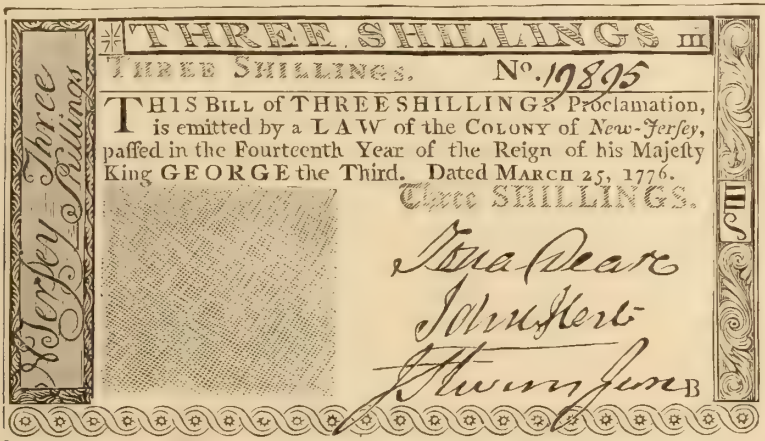 THREE SHILLINGS III
THREE SHILLINGS. No. 19895
THIS BILL of THREE SHILLINGS Proclamation,
is emitted by a LAW of the COLONY of New-Jerſey,
paſſed in the Fourteenth Year of the Reign of his Majeſty
King GEORGE the Third. Dated MARCH 25, 1776.
Three SHILLINGS.
Jona Deare
John Hart
J Stevens Junr B
N Jerſey Three
Shillings
III S